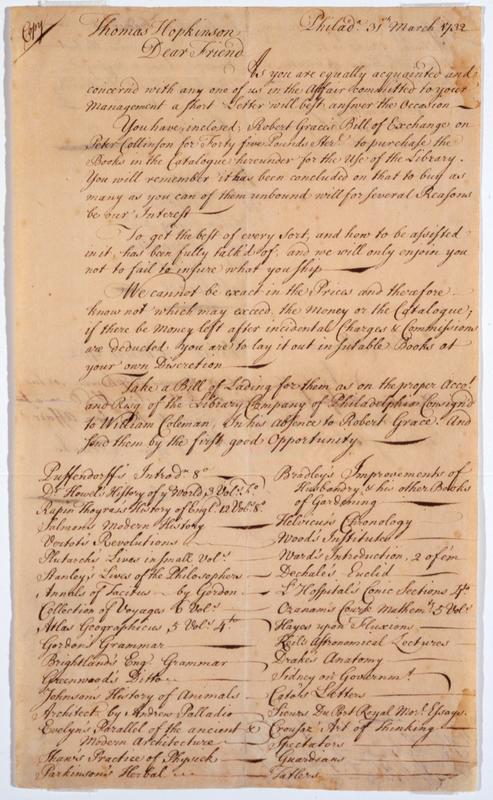 Copy
Thomas Hopkinson Philada 31st March 1732
Dear Friend
As you are equally acquainted and
concernd with any one of us in the Affair committed to your
Management a short Letter will best answer the Occasion
You have, inclosed, Robert Grace's Bill of Exchange on
Peter Collinson for Forty five Pounds Sterg to purchase the
Books in the Catalogue hereunder for the Use of the Library.
You will remember it has been concluded on that to buy as
many as you can of them unbound will for several Reasons
be our Interest
To get the best of every sort, and how to be assisted
in it, has been fully talk'd of, and we will only enjoin you
not to fail to insure what you ship
We cannot be exact in the Prices and therefore
know not which may exceed, the Money or the Catalogue;
if there be Money left after incidental Charges & Commissions
are deducted, you are to lay it out in sutable Books at
your own Discretion
Take a Bill of Lading for them as on the proper Accot
and Risq of the Library Company of Philadelphia Consign'd
to William Coleman, In his Absence to Robert Grace. And
send them by the first good Opportunity.
Puffendorff's Introdn 8o
Dr Howel's History of ye World, 3 Vols. fo
Rapin Thoyras's History of Engld 12 Vols 8o
Salmon's Modern History
Vertot's Revolutions
Plutarch's Lives in small Vols
Stanley's Lives of the Philosophers
Annals of Tacitus by Gordon
Collection of Voyages 6 Vols
Atlas Geographicus 5 Vols 4to
Gordon's Grammar
Brightland's Eng. Grammar
Greenwood's Ditto
Johnson's History of Animals
Architect. by Andrew Palladio
Evelyn's Parallel of the ancient &
Modern Architecture
Shaw's Practice of Physick
Parkinson's Herbal
Bradley's Improvements of
Husbandry, & his other Books
of Gardening
Helvicus's Chronology
Wood's Institutes
Ward's Introduction, 2 of em
Dechale's Euclid
L'Hospital's Conic Sections 4to
Ozanam's Course Mathem. 5 Vols
Hayes upon Fluxions
Keil's Astronomical Lectures
Drake's Anatomy
Sidney on Governmt
Cato's Letters
Sieurs Du Port Royal Morl Essays.
Crousaz's Art of thinking
Spectators
Guardians
Tatlers